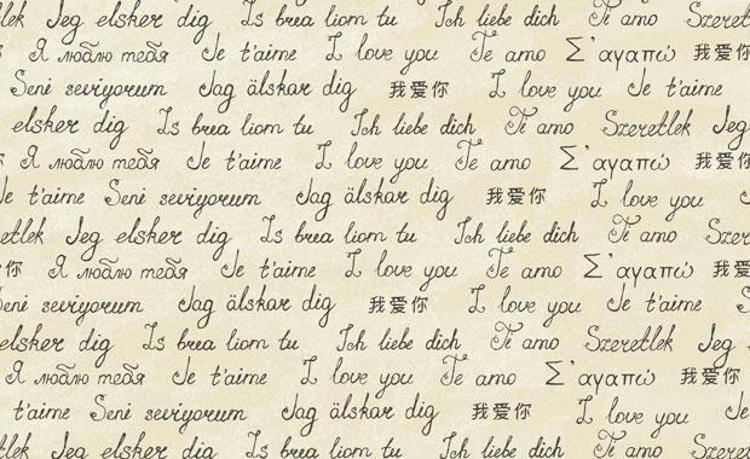 tlek Jeg elsker dig Is brea liom tu Ich liebe dich Ti amo Szeretlek
Я люблю тебя Je t'aime I love you Te amo Σ'αγαπώ 我爱你
Seni seviyorum Jag älskar dig 我爱你 I love you Je t'aime
elsker dig Is brea liom tu Ich liebe dich Ti amo Szeretlek Jeg
Я люблю тебя Je t'aime I love you Te amo Σ'αγαπώ 我爱你
Je t'aime Seni seviyorum Jag älskar dig 我爱你 I love you
etlek Jeg elsker dig Is brea liom tu Ich liebe dich Ti amo Szer
你 Я люблю тебя Je t'aime I love you Te amo Σ'αγαπώ 我爱
Seni seviyorum Jag älskar dig 我爱你 I love you Je t'aime S
elsker dig Is brea liom tu Ich liebe dich Ti amo Szeretlek Jeg
Я люблю тебя Je t'aime I love you Te amo Σ'αγαπώ 我爱你
t'aime Seni seviyorum Jag älskar dig 我爱你 I love you Je
tlek Jeg elsker dig Is brea liom tu Ich liebe dich Ti amo Szeretlek